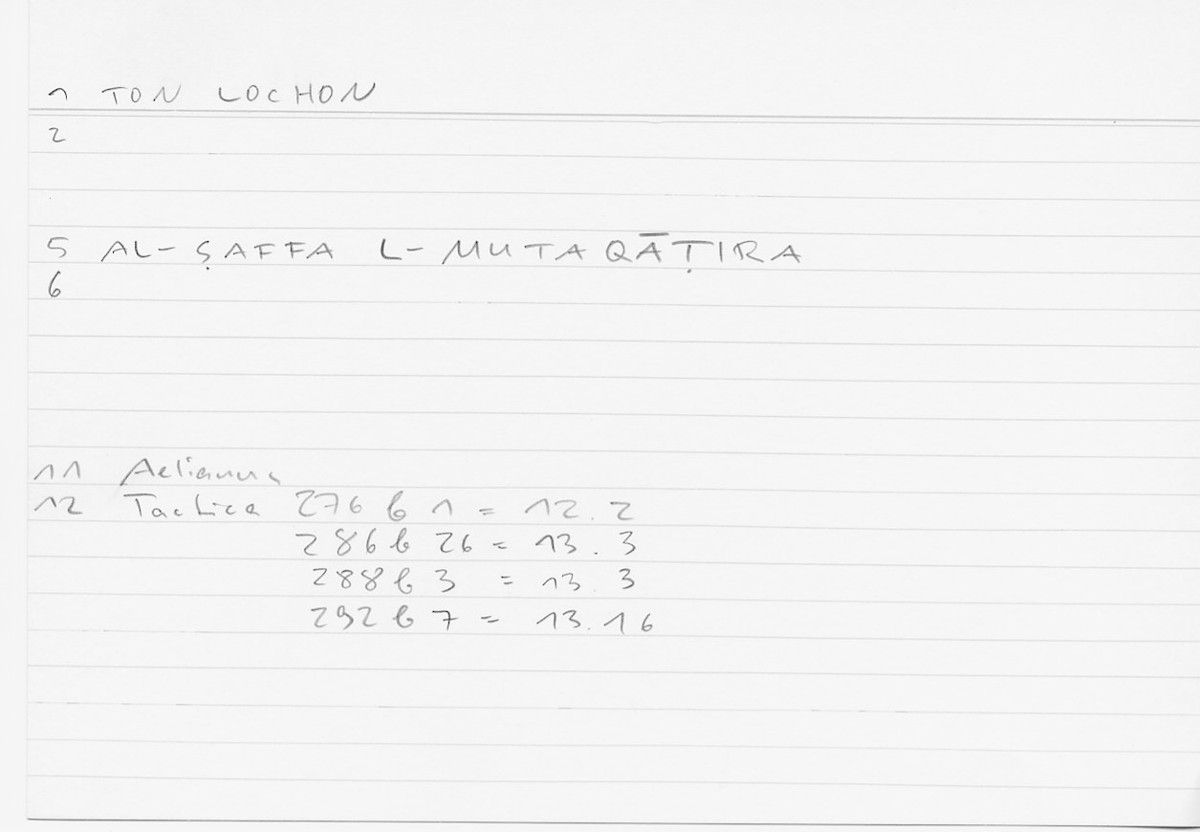 1 TON LOCHON
2
5 AL-ṢAFFA L-MUTAQĀṬIRA
6
11 Aelianus
12 Tactica 276 b 1 = 12.2
286 b 26 = 13.3
288 b 3 = 13.3
292 b 7 = 13.16